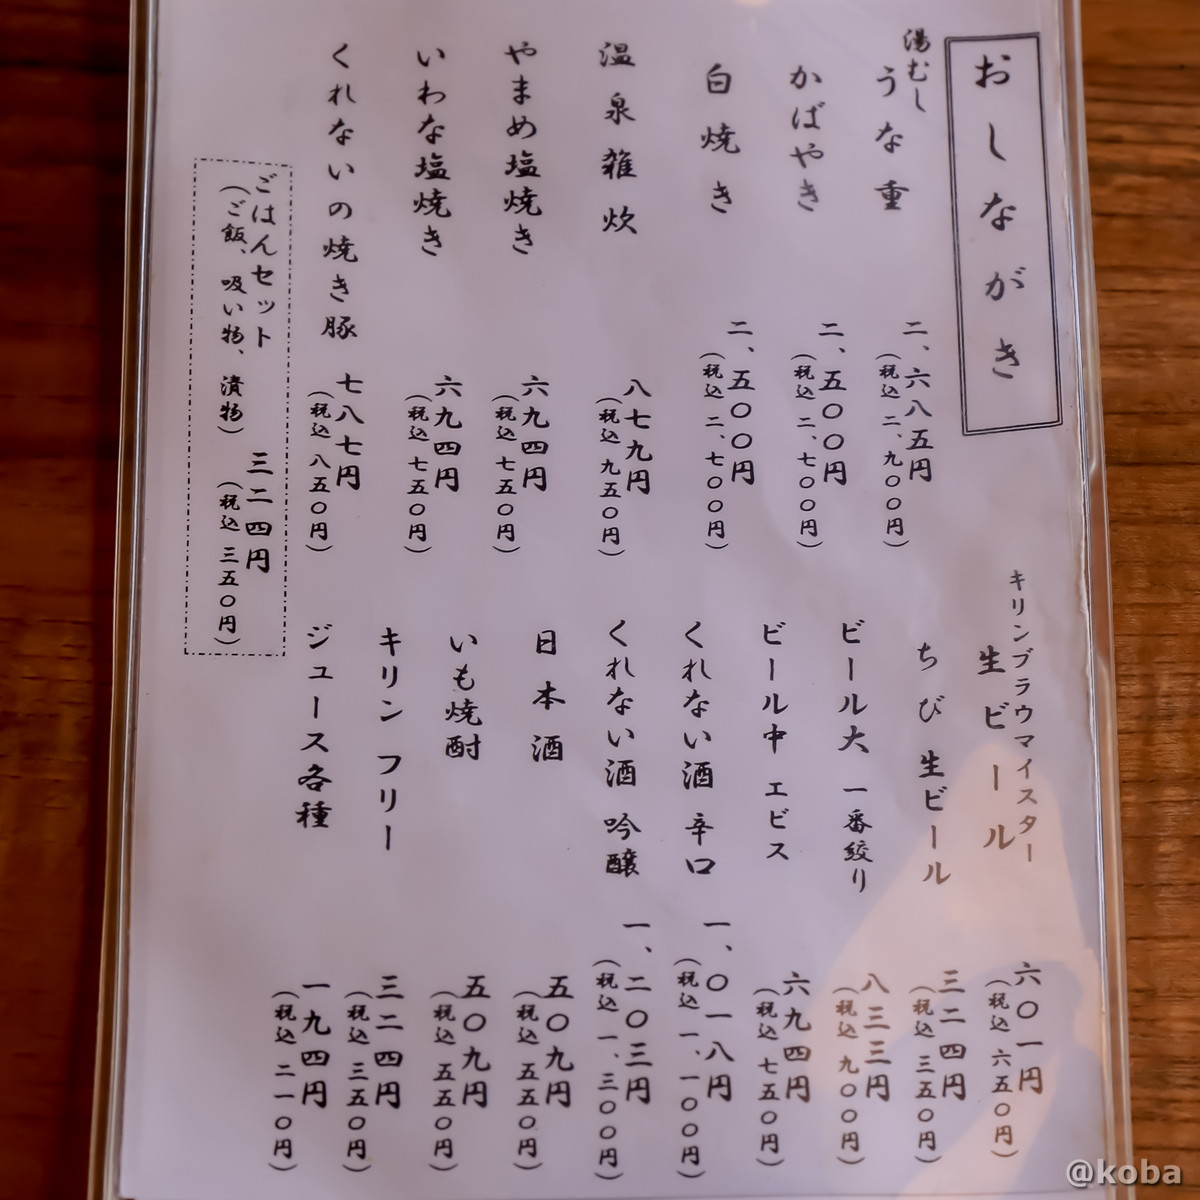 おしながき
湯むし
うな重
二、六八五円
(税込 二、九〇〇円)
かばやき
二、五〇〇円
(税込 二、七〇〇円)
白焼き
二、五〇〇円
(税込 二、七〇〇円)
温泉雑炊
八七九円
(税込 九五〇円)
やまめ塩焼き
六九四円
(税込 七五〇円)
いわな塩焼き
六九四円
(税込 七五〇円)
くれないの焼き豚
七八七円
(税込 八五〇円)
ごはんセット
(ご飯、吸い物、漬物)
三二四円
(税込 三五〇円)
キリンブラウマイスター
生ビール
六〇一円
(税込 六五〇円)
ちび生ビール
三二四円
(税込 三五〇円)
ビール大 一番絞り
八三三円
(税込 九〇〇円)
ビール中 エビス
六九四円
(税込 七五〇円)
くれない酒 辛口
一、〇一八円
(税込 一、一〇〇円)
くれない酒 吟醸
一、二〇三円
(税込 一、三〇〇円)
日本酒
五〇九円
(税込 五五〇円)
いも焼酎
五〇九円
(税込 五五〇円)
キリン フリー
三二四円
(税込 三五〇円)
ジュース各種
一九四円
(税込 二一〇円)
@koba